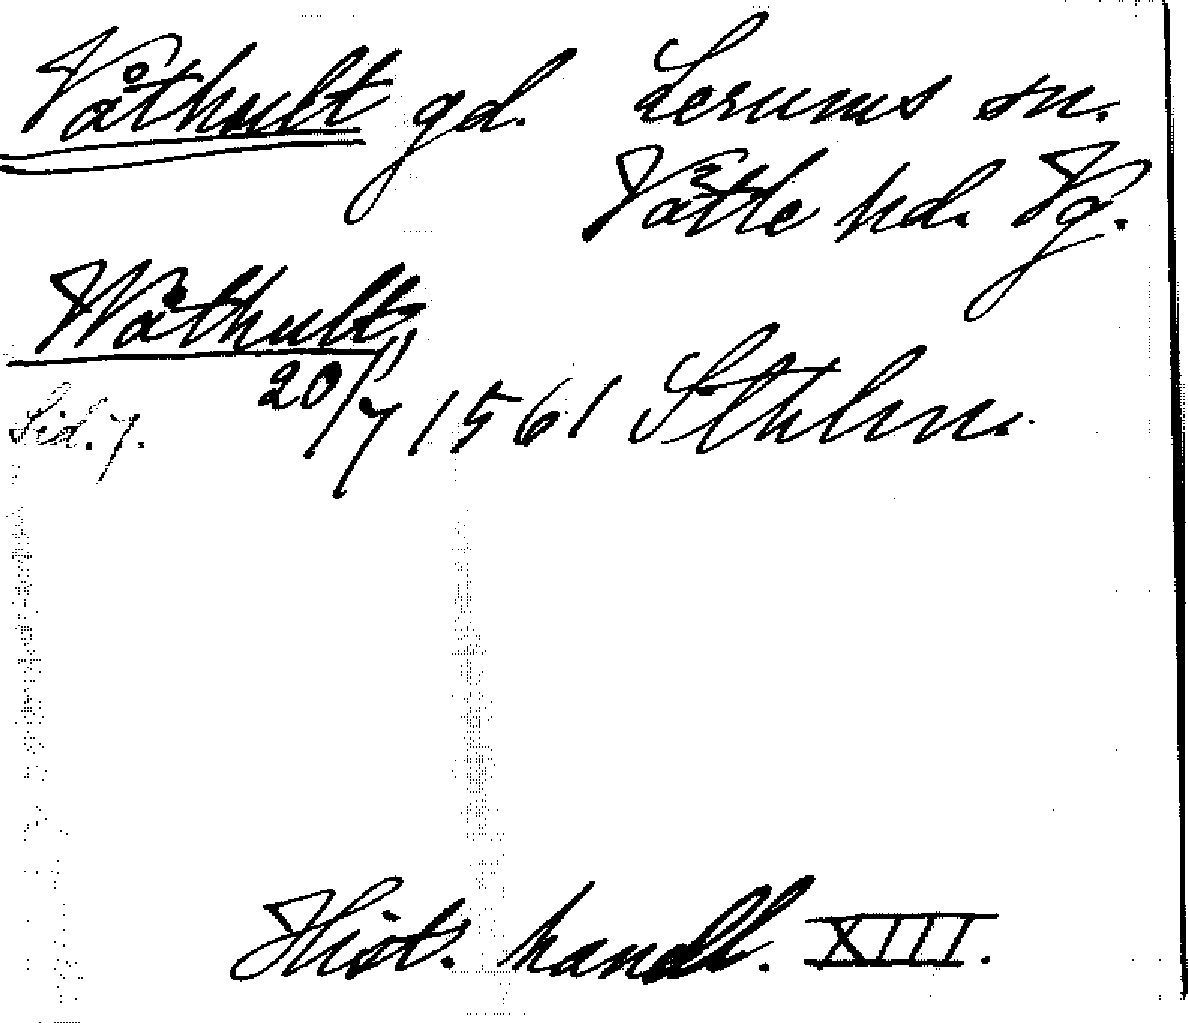 Våthult gd. Lerums sn.
Vättle hd. Vg.
Wåthult,
20/7 1561 Sthlm.
Sid. 7.
Hist. handl. XIII.